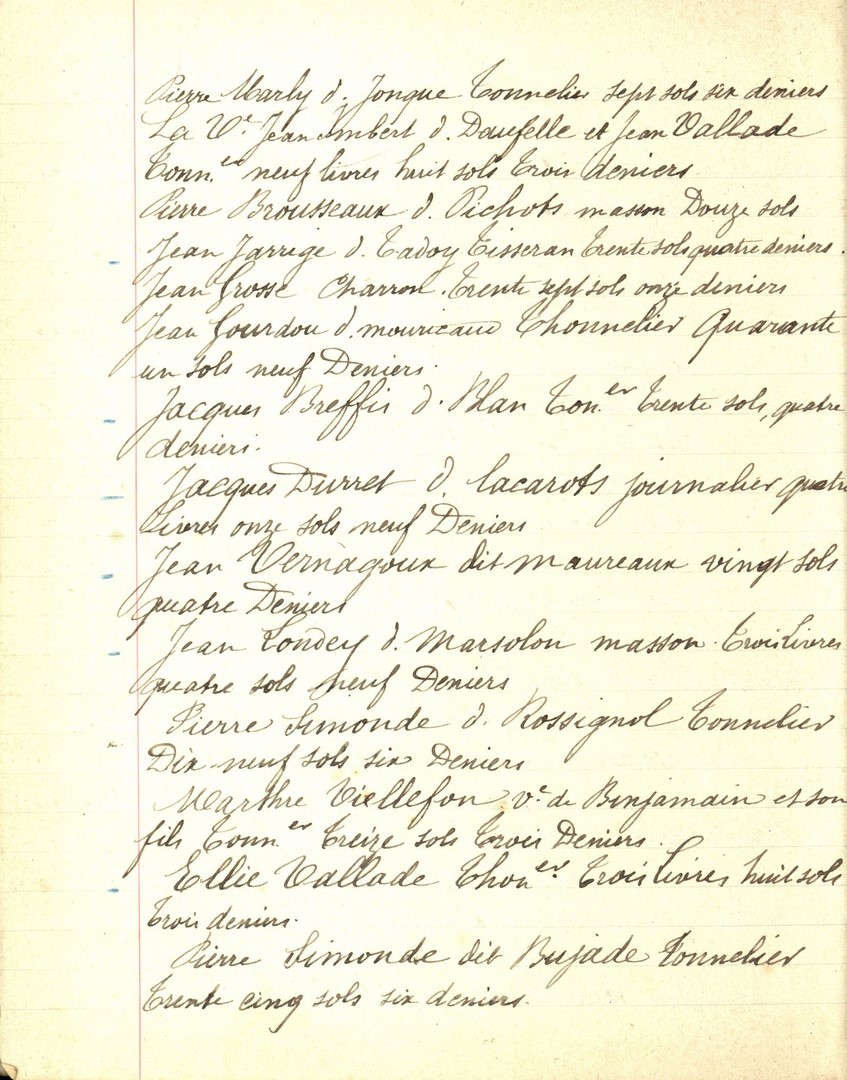 Pierre Marly d. Jonque Tonnelier sept sols six deniers
La Ve. Jean imbert d. Daufelle et Jean Vallade
Tonn.er neuf livres huit sols trois deniers
Pierre Brousseaux d. Pichots masson Douze sols
Jean Jarrige d. Cadoy Tisseran trente sols quatre deniers.
Jean Grosse Charron. trente sept sols onze deniers
Jean Gourdou d. mouricaud Thonnelier Quarante
un sols neuf Deniers.
Jacques Breffis d. Blan Ton.er trente sols, quatre
deniers.
Jacques Durret d. lacarots journalier quatre
Livres onze sols neuf Deniers
Jean Vernagoux dit maureaux vingt sols
quatre Deniers
Jean Londey d. Marsolou masson. trois livres
quatre sols neuf Deniers
Pierre Simonde d. Rossignol Tonnelier
Dix neuf sols six Deniers
Marthre Viellefon ve. de Binjamain et son
fils Tonn.er treize sols trois Deniers.
Ellie Vallade Thon.er trois livres huit sols
trois deniers.
Pierre Simonde dit Bujade Tonnelier
trente cinq sols six deniers.